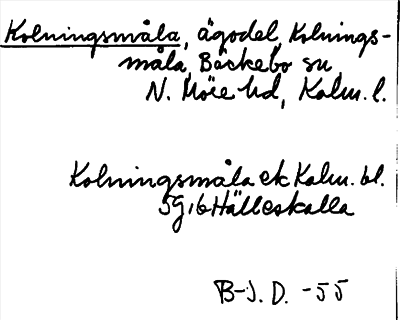 Kolningsmåla, ägodel, Kolnings-
måla, Bäckebo sn
N. Möre hd, Kalm. l.
Kolningsmåla ek Kalm. bl.
5g16 Hälleskalla
B-J. D. -55